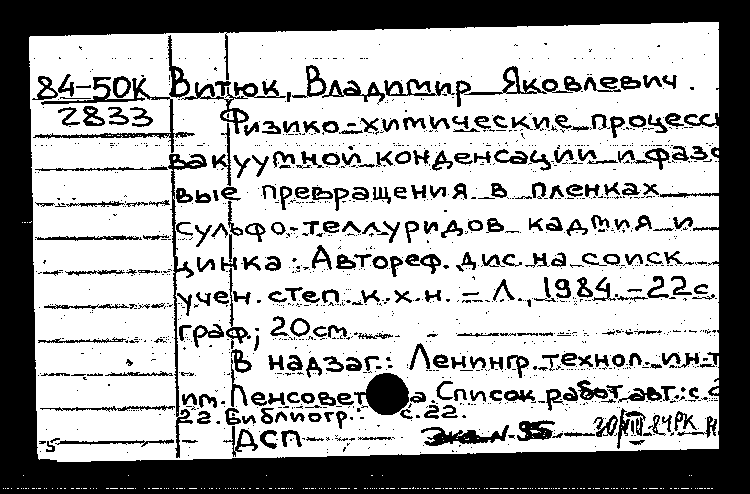 84-50К Витюк, Владимир Яковлевич.
2833 Физико-химические процессы
вакуумной конденсации и фазо
вые превращения в пленках
сульфо-теллуридов кадмия и
цинка: Автореф. дис. на соиск
учен. степ. к.х.н. – Л., 1984. – 22 с.
граф.; 20 см.
В надзаг.: Ленингр. технол. ин-т
им. Ленсовета. Список работ авт.: с
22. Библиогр.: с. 22.
ДСП Экз. N 95 30/VIII-84 РК
5